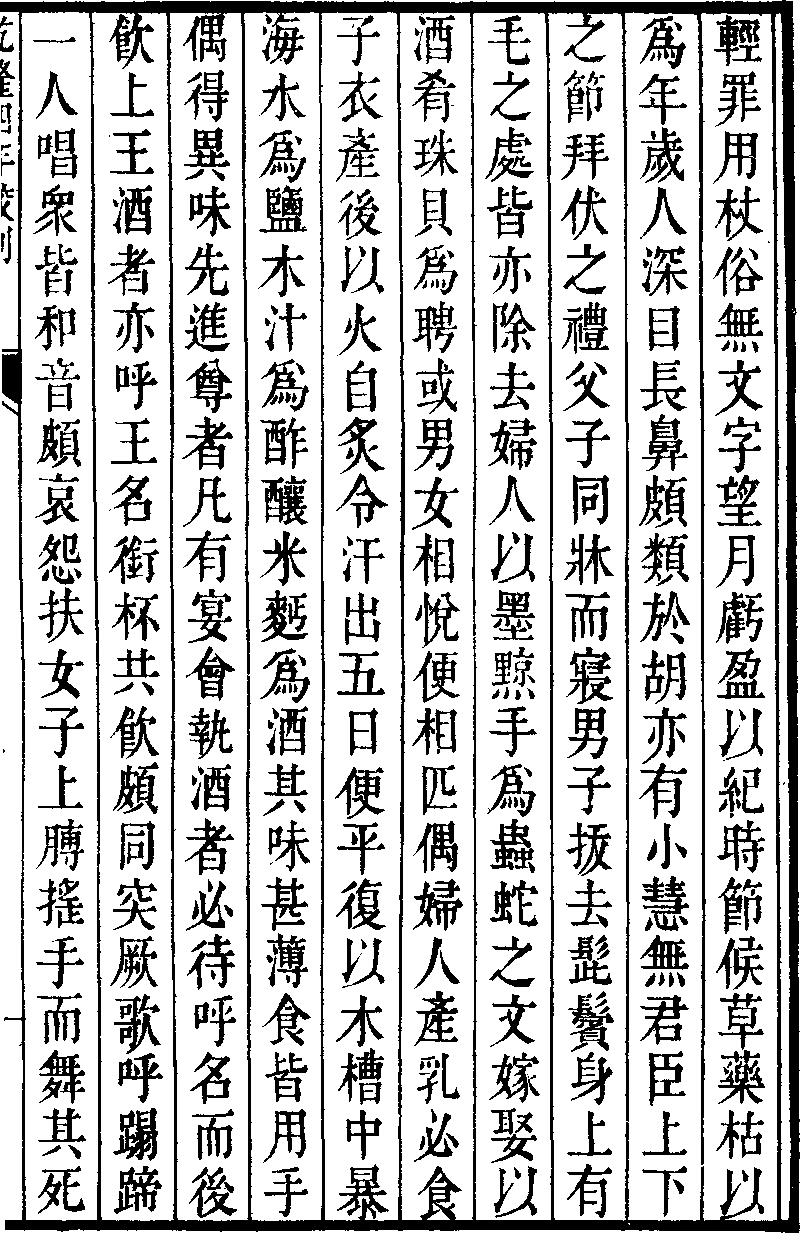 輕罪用杖俗無文字望月虧盈以紀時節候草藥枯以
爲年歲人深目長鼻頗類於胡亦有小慧無君臣上下
之節拜伏之禮父子同牀而寢男子拔去髭鬢身上有
毛之處皆亦除去婦人以墨黥手爲蟲蛇之文嫁娶以
酒肴珠貝爲聘或男女相悅便相匹偶婦人產乳必食
子衣產後以火自炙令汗出五日便平復以木槽中暴
海水爲鹽木汁爲酢釀米麪爲酒其味甚薄食皆用手
偶得異味先進尊者凡有宴會執酒者必待呼名而後
飲上王酒者亦呼王名銜杯共飲頗同突厥歌呼蹋蹄
一人唱衆皆和音頗哀怨扶女子上膊搖手而舞其死
乾隆四年校刊